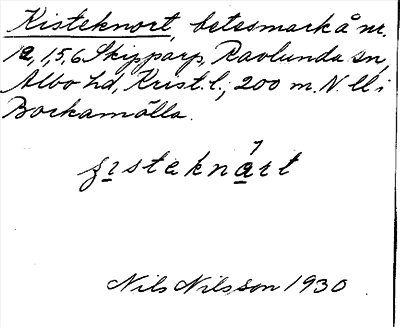 Kisteknort, betesmark å nr.
12, 1, 5, 6 Skipparp, Ravlunda sn,
Albo hd, Krist. l.; 200 m. N. ll i
Bockamölla.
ɟisteknart
Nils Nilsson 1930